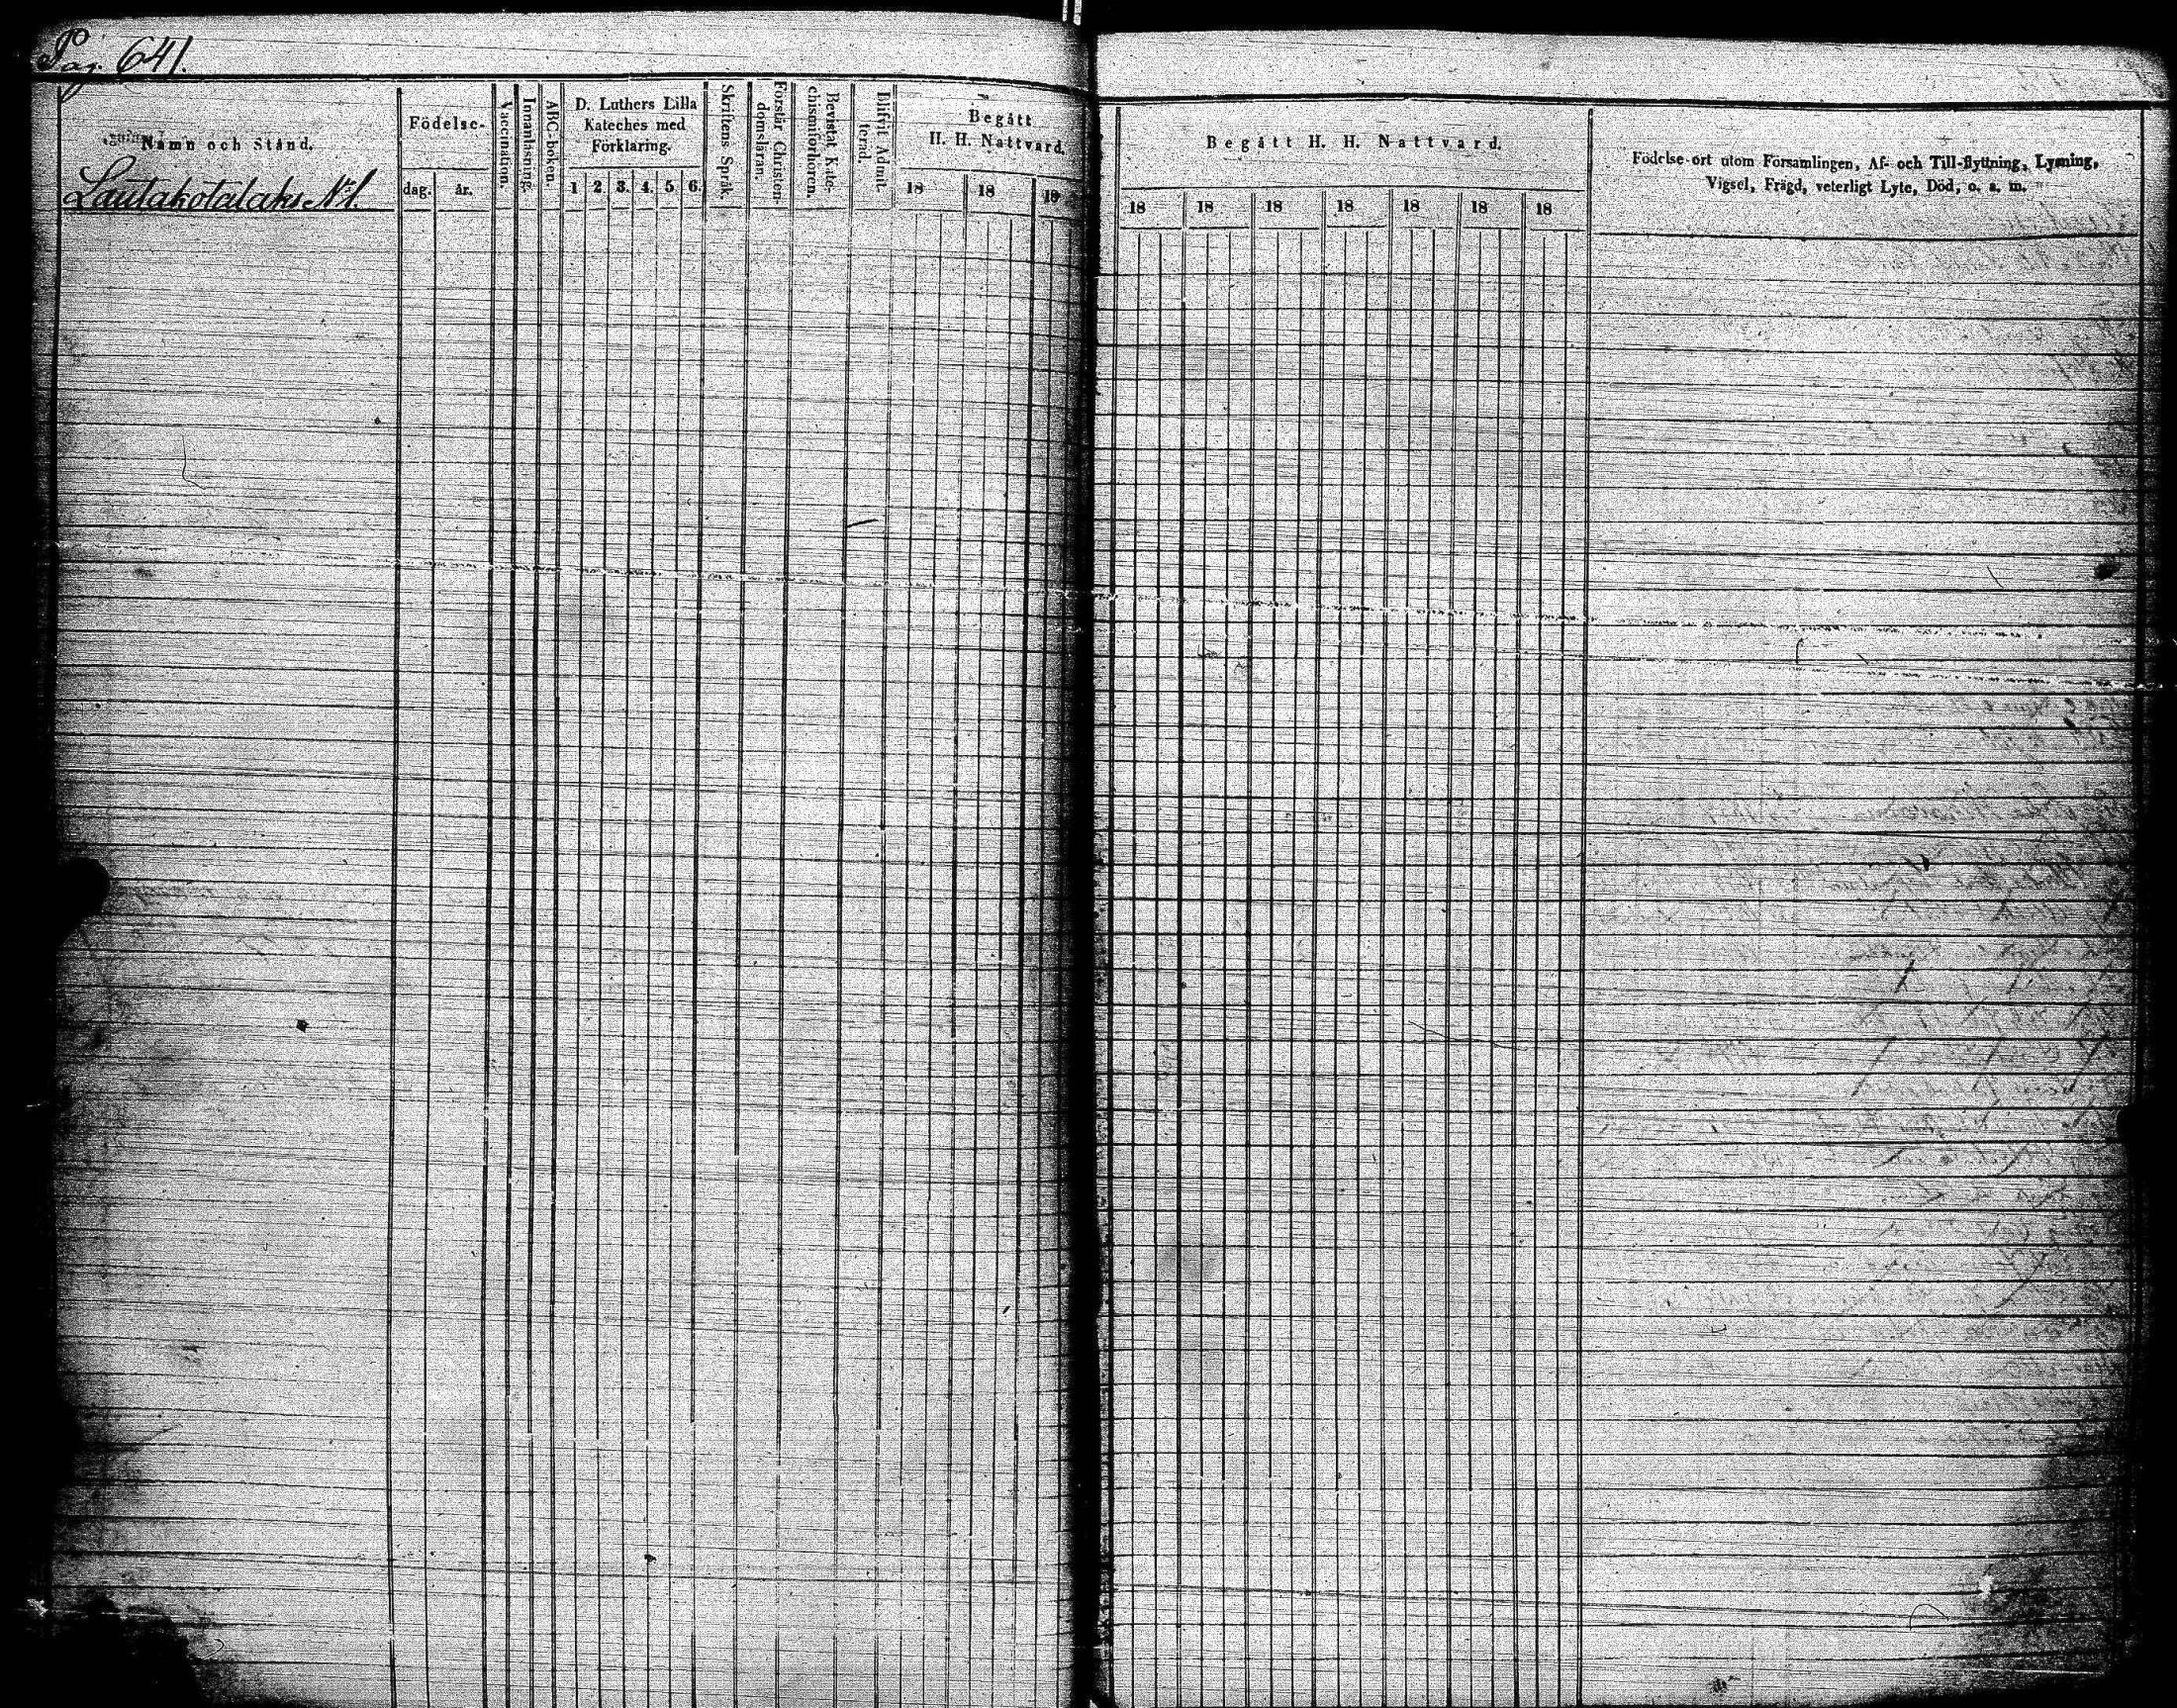 Pag. 641.
Namn och Stånd.
Lautakotalaks No 1.
Födelse-
dag. år.
Vaccination.
Innanläsning.
ABC-boken.
D. Luthers Lilla
Kateches med
Förklaring.
1 2. 3. 4. 5 6.
Skriftens Språk.
Förstår Christen-
domsläran.
Bevistat Kate-
chismiförhören.
Blifvit Admit-
terad.
Begått
H. H. Nattvard.
18 18 18
Begått H. H. Nattvard.
18 18 18 18 18 18 18
Födelse-ort utom Församlingen, Af- och Till-flyttning, Lysning,
Vigsel, Frägd, veterligt Lyte, Död, o. s. m.